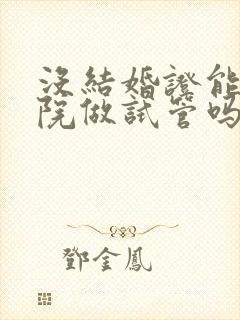 沒結婚證能
院做試管嗎
鄧金鳳